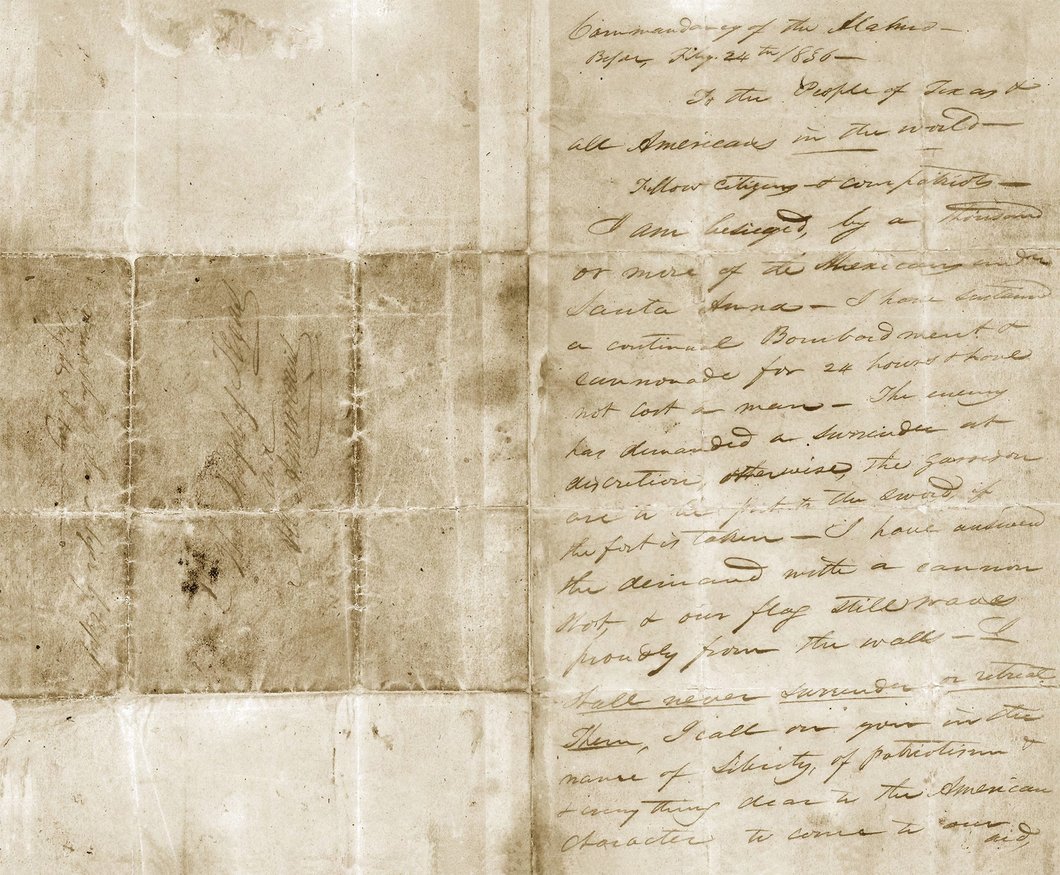 Commandancy of the Alamo—
Bejar, Feby. 24th 1836—
To the People of Texas &
all Americans in the world—
Fellow citizens & compatriots—
I am besieged, by a thousand
or more of the Mexicans under
Santa Anna— I have sustained
a continual Bombardment &
cannonade for 24 hours & have
not lost a man— The enemy
has demanded a surrender at
discretion, otherwise, the garrison
are to be put to the sword, if
the fort is taken— I have answered
the demand with a cannon
shot, & our flag still waves
proudly from the walls— I
shall never surrender or retreat
Then, I call on you in the
name of Liberty, of patriotism &
& every thing dear to the American
character, to come to our aid,